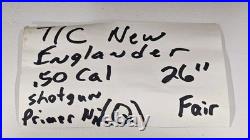 T/C New
Englander
.50 Cal 26"
shotgun
Primer Fair